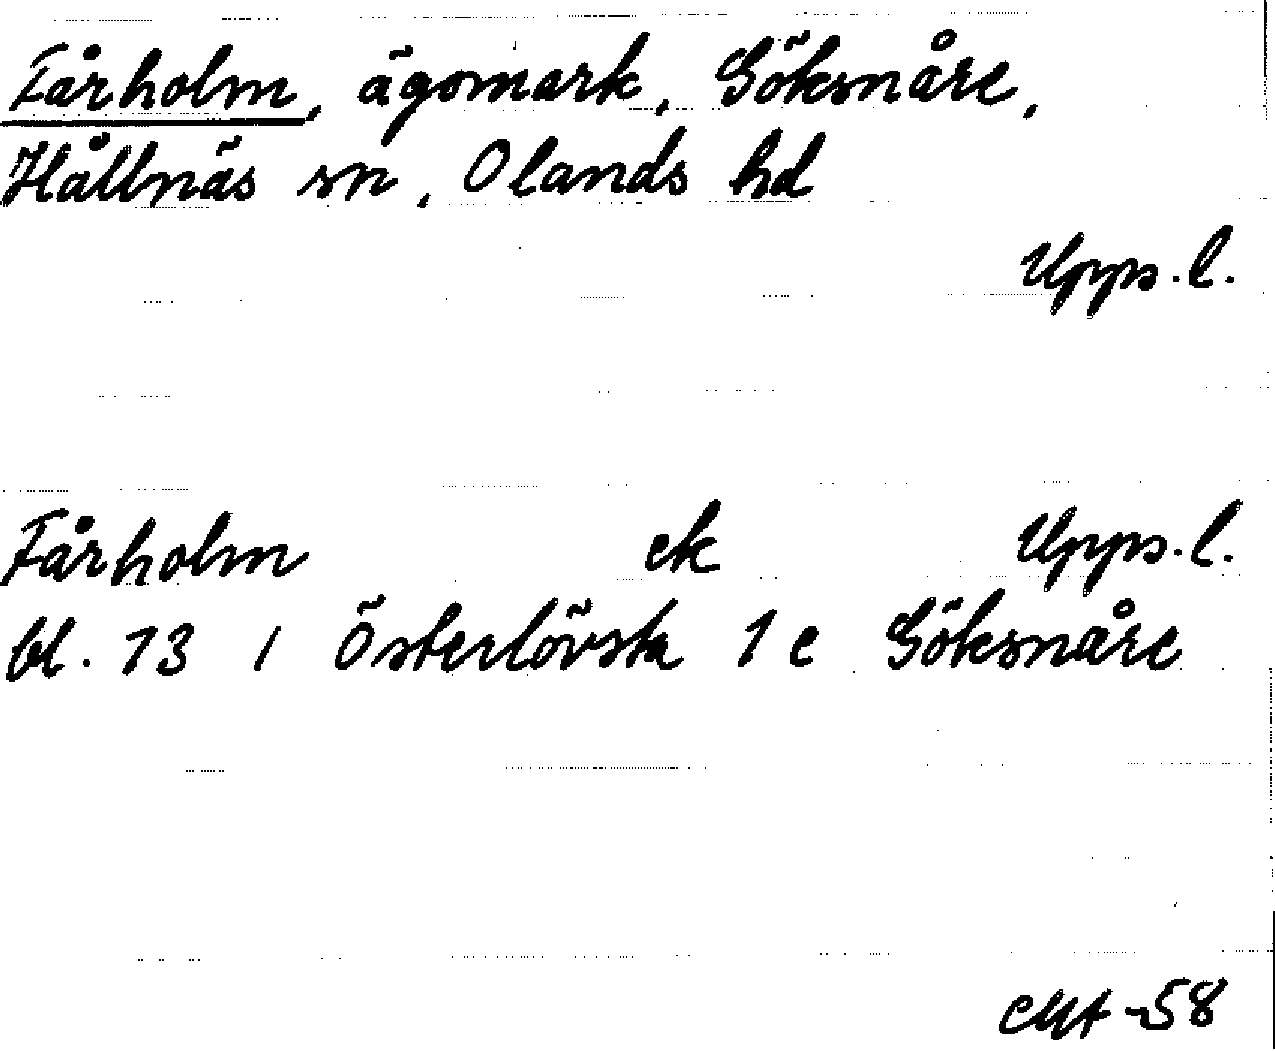 Fårholm, ägomark, Göksnåre,
Hållnäs sn, Olands hd
Upps. l.
Fårholm ek Upps. l.
bl. 13 i Österlövsta 1 e Göksnåre
-58